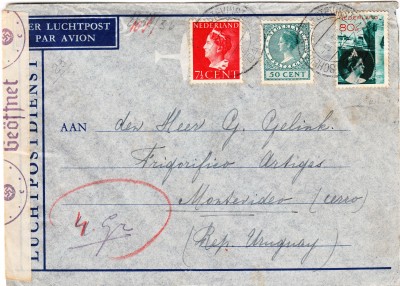 PER LUCHTPOST
PAR AVION
NEDERLAND
7½ CENT
NEDERLAND
50 CENT
Nederland
80c
Geöffnet
LUCHTPOSTDIENST
AAN
den Heer G. Gelink.
Frigorifico Artigas
Montevideo (cerro)
(Rep. Uruguay)
4 Gr